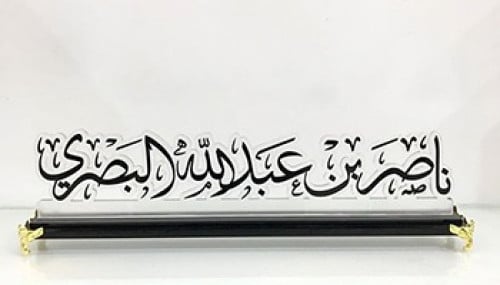 ناصر بن عبدالله البصري